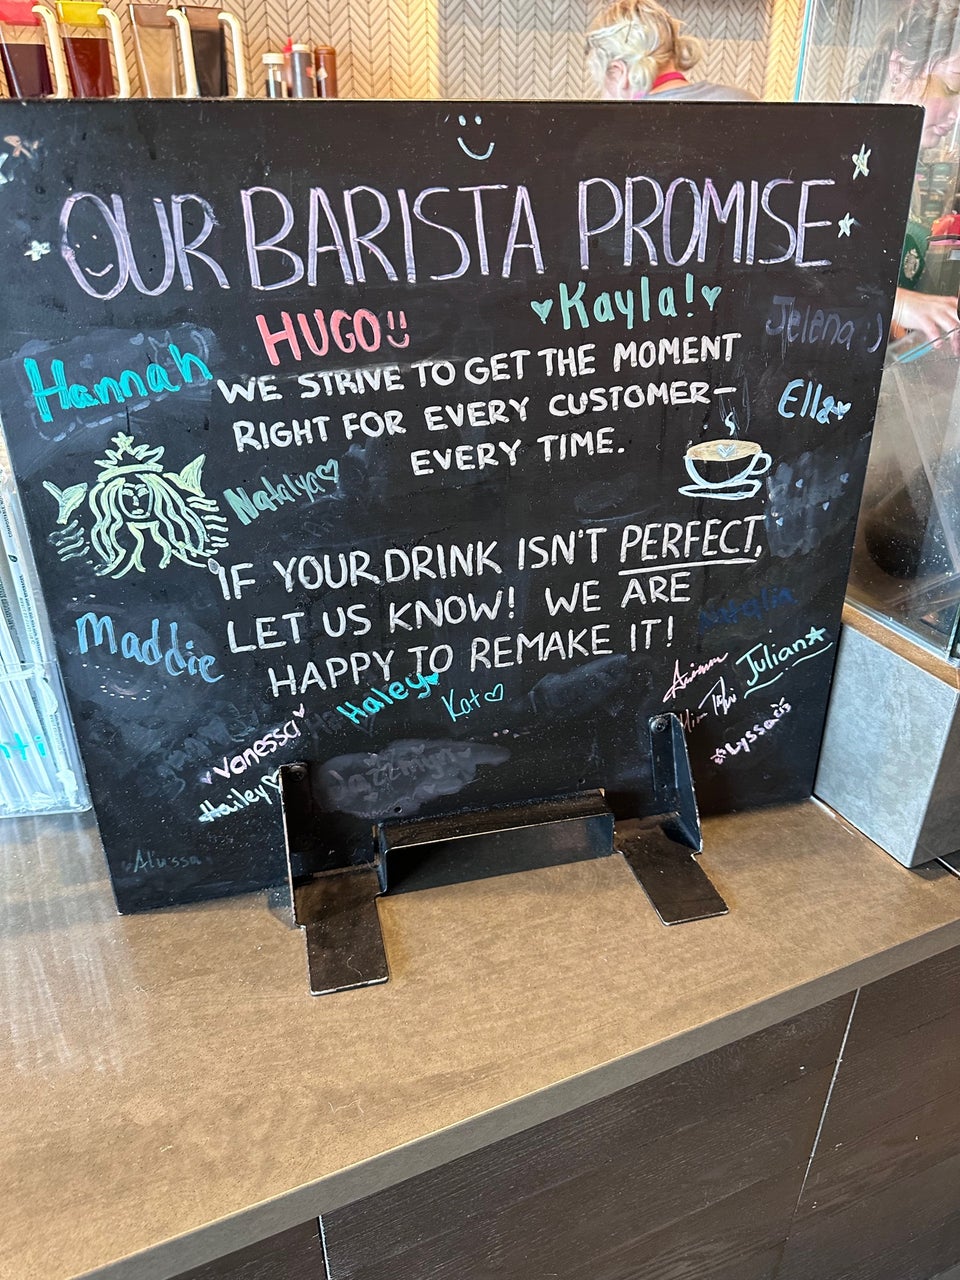 OUR BARISTA PROMISE
HUGO
Kayla!
Jelena :)
Hannah
WE STRIVE TO GET THE MOMENT
RIGHT FOR EVERY CUSTOMER—
EVERY TIME.
Ella
Natalya
IF YOUR DRINK ISN'T PERFECT,
LET US KNOW! WE ARE
HAPPY TO REMAKE IT!
Maddie
Julian
Haley
Kat
Vanessa
Lyssa
Hailey
Jazzmyn
Alyssa